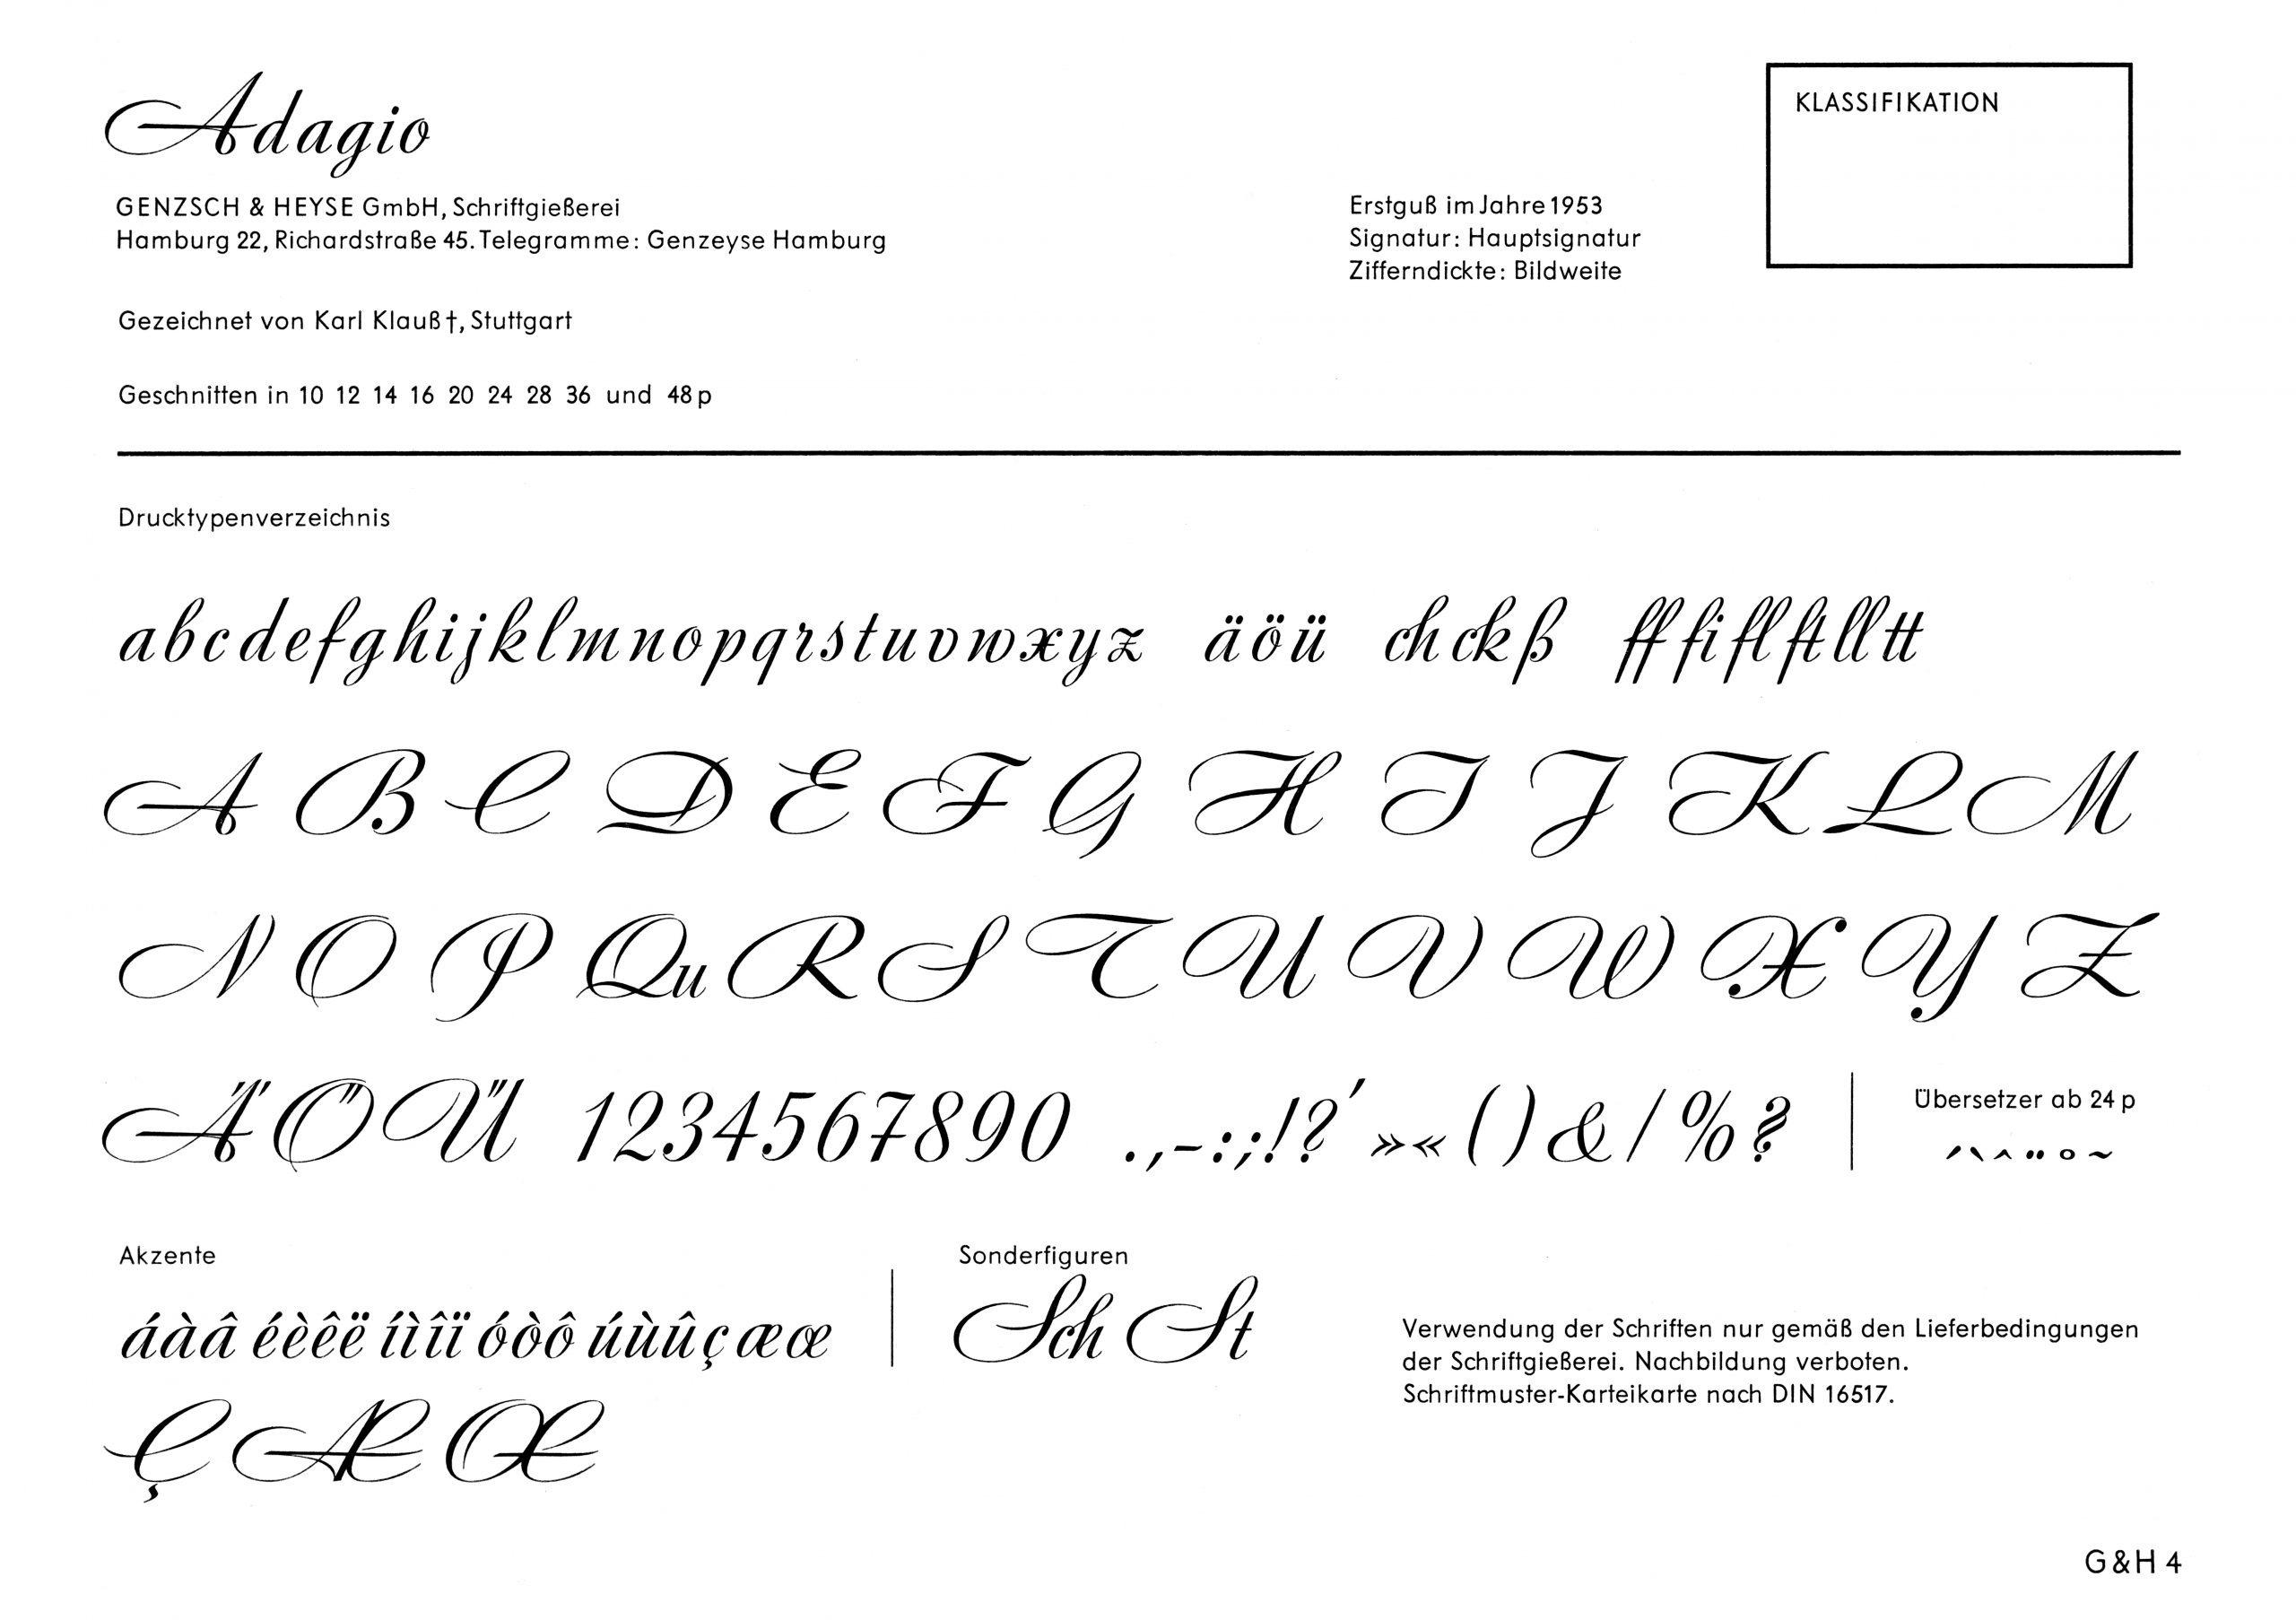 Adagio
KLASSIFIKATION
GENZSCH & HEYSE GmbH, Schriftgießerei
Hamburg 22, Richardstraße 45. Telegramme: Genzeyse Hamburg
Erstguß im Jahre 1953
Signatur: Hauptsignatur
Zifferndickte: Bildweite
Gezeichnet von Karl Klauß †, Stuttgart
Geschnitten in 10 12 14 16 20 24 28 36 und 48 p
Drucktypenverzeichnis
abcdefghijklmnopqrstuvwxyz äöü chckß fffiflftlltt
A B C D E F G H I J K L M
N O P Qu R S T U V W X Y Z
Ä Ö Ü 1234567890 .,-:;!?’ »« ( ) & / %
Übersetzer ab 24 p
´ ` ^ ¨ ° ~
Akzente
áàâ éèêë íìîï óòô úùûç æœ
Ç Æ Œ
Sonderfiguren
Sch St
Verwendung der Schriften nur gemäß den Lieferbedingungen
der Schriftgießerei. Nachbildung verboten.
Schriftmuster-Karteikarte nach DIN 16517.
G & H 4